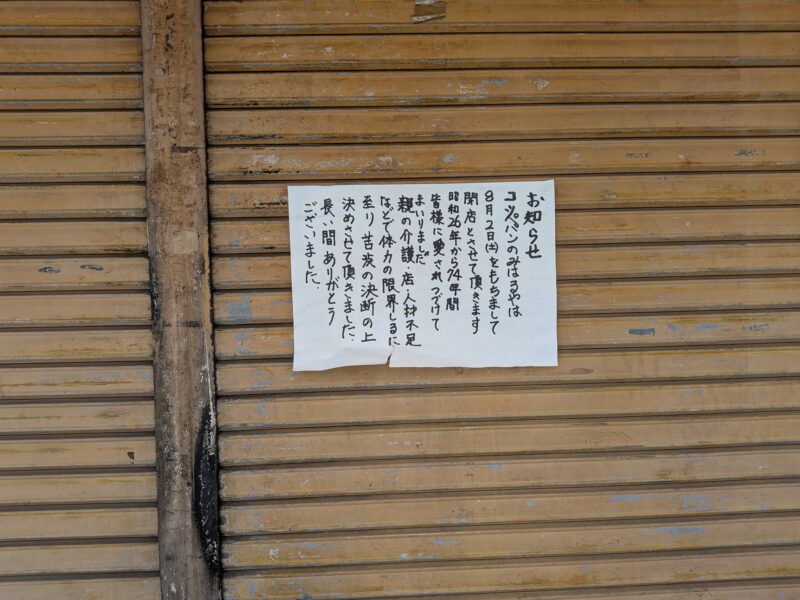 お知らせ
コッペパンのみはるやは
8月2日(土)をもちまして
閉店とさせて頂きます
昭和26年から74年間
皆様に愛されつづけて
まいりました
親の介護・店・人材不足
などで体力の限界しるに
至り苦渋の決断の上
決めさせて頂きました、
長い間ありがとう
ございました、